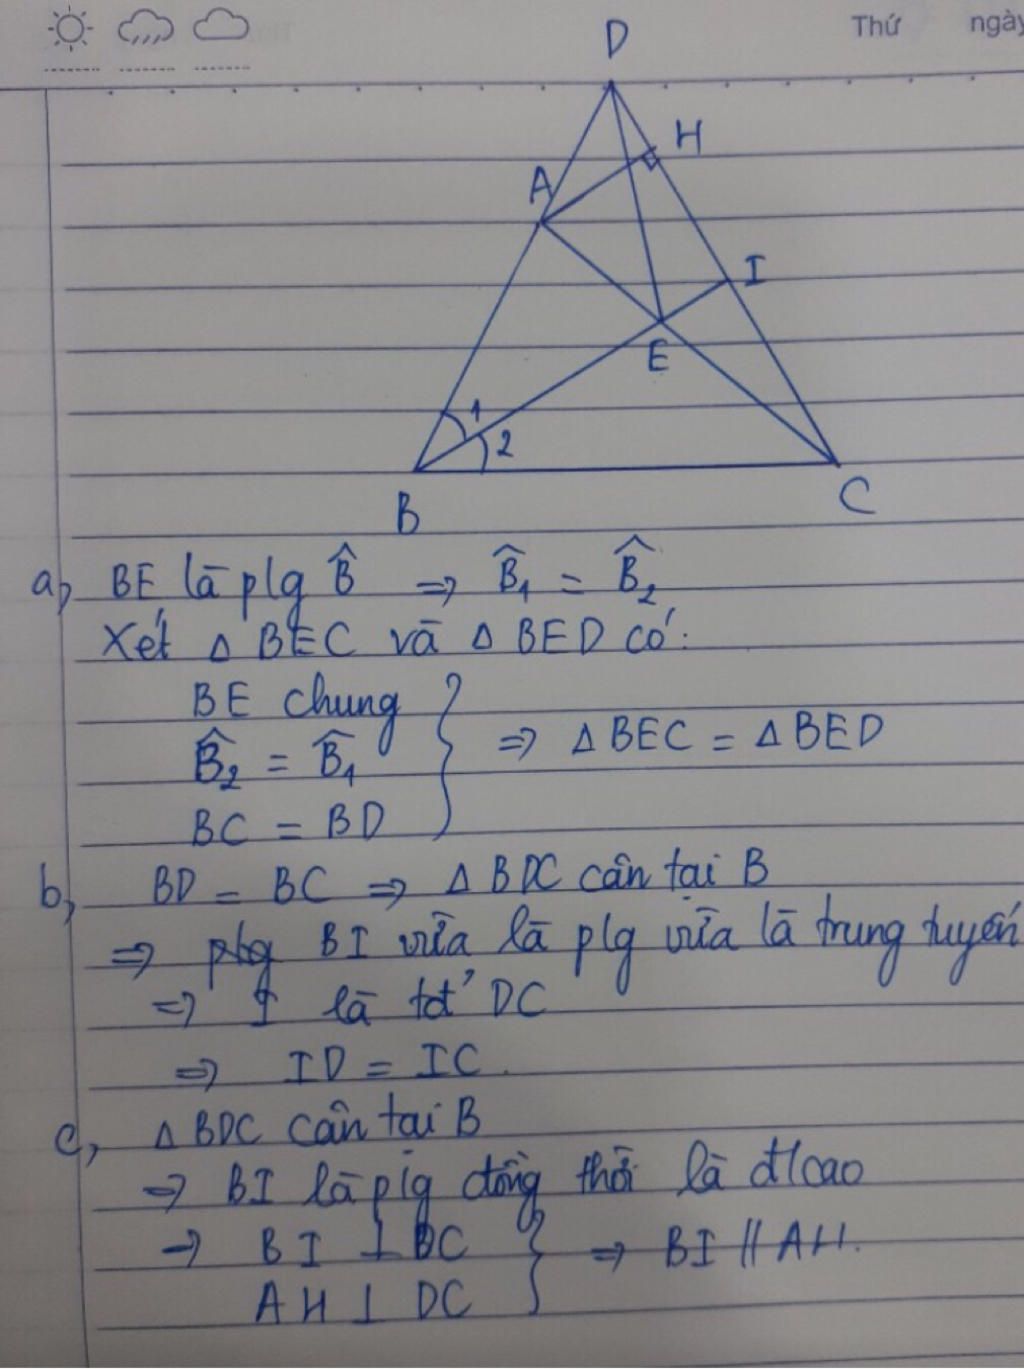 Thứ ngày
D
H
A
I
E
1
2
B
C
a, BE là plg B̂ => B̂₁ = B̂₂
Xét Δ BEC và Δ BED có:
BE chung
B̂₂ = B̂₁ => Δ BEC = Δ BED
BC = BD
b, BD = BC => Δ BDC cân tại B
=> plg BI vừa là plg vừa là trung tuyến
=> I là tđ' DC
=> ID = IC.
c, Δ BDC cân tại B
=> BI là plg đồng thời là đ/cao
=> BI ⊥ DC
AH ⊥ DC => BI // AH.